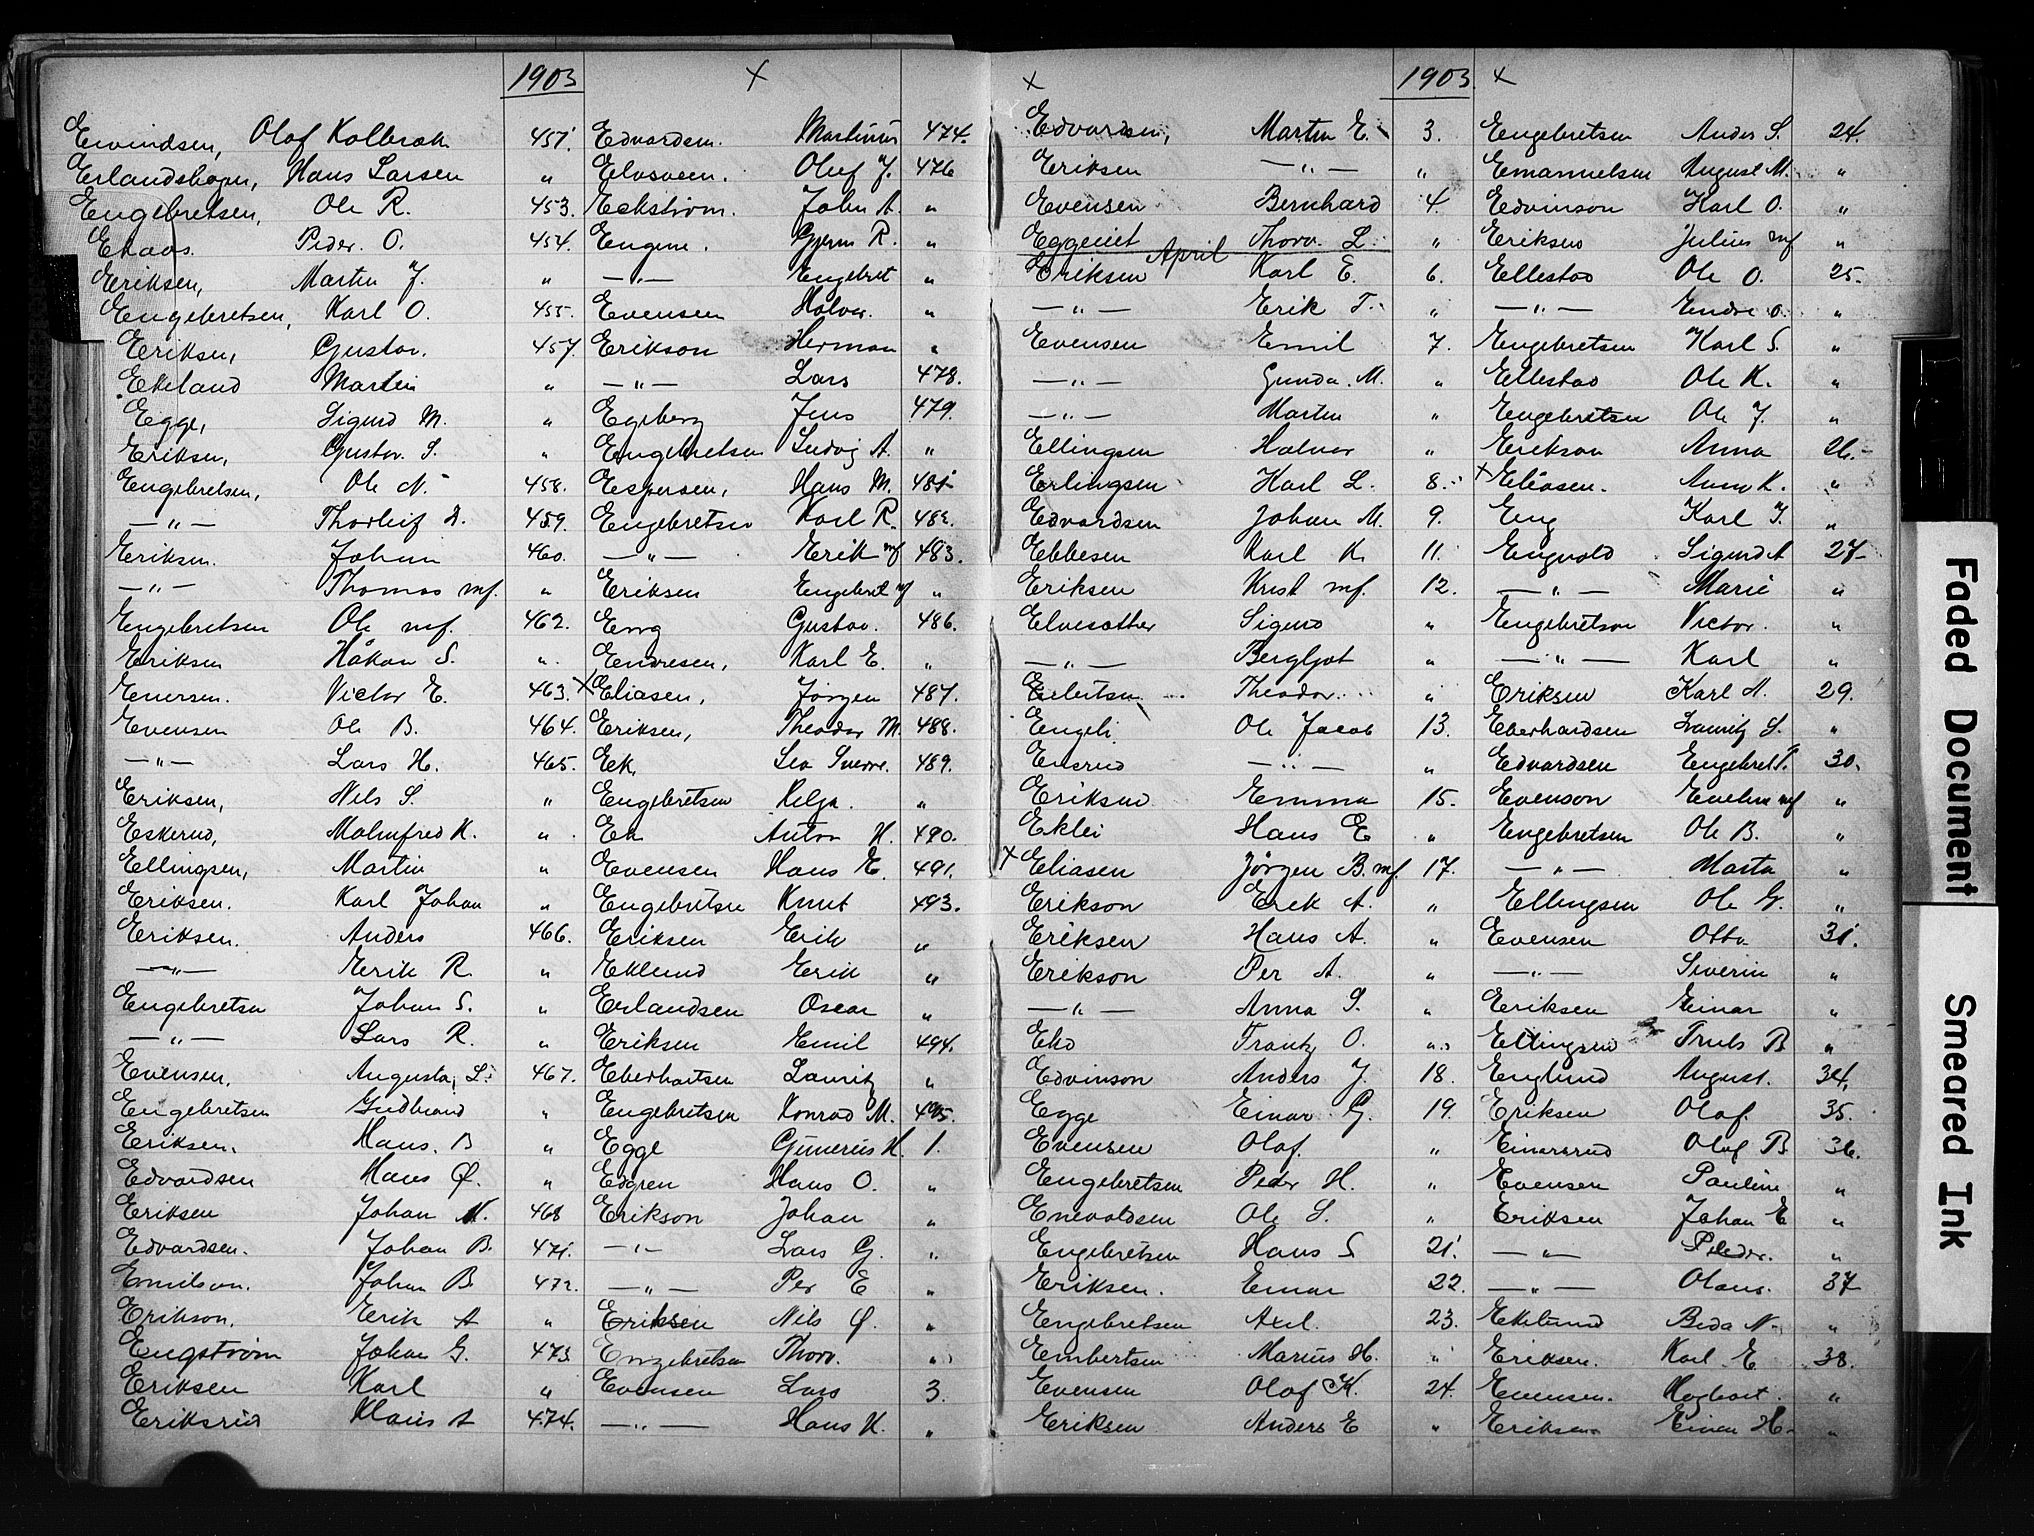 1903
Eivindsen, Olaf Kolbrek 451.
Erlandshagen, Hans Larsen "
Engebretsen, Ole R. 453.
Ekaas. Peder. O. 454.
Eriksen, Martin J. "
Engebretsen, Karl O. 455.
Eriksen, Gustav. 457.
Ekeland Martin "
Egge, Sigurd M. "
Eriksen, Gustav. S. "
Engebretsen, Ole N. 458.
—"— Thorleif 459.
Eriksen. Johan 460.
—"— Thomas mf. "
Engebretsen Ole mf. 462.
Eriksen Håkan S. "
Enersen. Victor E. 463.
Evensen Ole B. 464.
—"— Lars H. 465.
Eriksen, Nils S. "
Eskerud, Malmfred K. "
Ellingsen, Martin "
Eriksen. Karl Johan "
Eriksen. Anders 466.
—"— Erik R. "
Engebretsen Johan S. "
—"— Lars R. "
Evensen, Augusta, L. 467.
Engebretsen Gudbrand "
Eriksen. Hans. B "
Edvardsen Hans Ø. "
Eriksen Johan M. 468
Edvardsen. Johan B. 471.
Emilson. Johan B 472.
Erikson. Erik A "
Engstrøm Johan G. 473
Eriksen Karl "
Eriksrud Klaus A 474.
+
Edvardsen. Martinus 474.
Elvsveen. Oluf J. 476
Eckstrøm. John A. "
Engene. Gjerm R. "
—"— Engebret "
Evensen Halvor. "
Erikson Herman "
—"— Lars 478.
Egeberg Jens 479.
Engebretsen Ludvig A. "
Espersen, Hans M. 481
Engebretsen Karl R. 482.
—"— Erik mf 483.
Eriksen Engebret mf "
Eng Gustav. 486.
Endresen, Karl E. "
+ Eliasen, Jørgen 487.
Eriksen, Theodor M. 488.
Ek. Leo Sverre. 489.
Engebretsen Helga. "
Ek Anton H. 490.
Evensen Hans E. 491.
Engebretsen Knut 493.
Eriksen Erik "
Eklund Erik "
Erlandsen Oscar "
Eriksen Emil 494.
Eberhartsen Lauritz "
Engebretsen Konrad M. 495.
Egge Gunerius H. 1.
Edgren Hans O. "
Erikson Johan "
—"— Lars G. "
—"— Per E "
Eriksen Nils Ø. "
Engebretsen Thorv. "
Evensen Lars 3.
—"— Hans K. "
+ 1903
Edvardsen, Martin E. 3.
Eriksen —"— "
Evensen Bernhard 4.
Eggeriet Thorv. L. "
April
Eriksen Karl E. 6.
—"— Erik T. "
Evensen Emil 7.
—"— Gunda. M. "
—"— Martin "
Ellingsen Halvor "
Erlingsen Karl L. 8.
Edvardsen Johan M. 9.
Ebbesen Karl K. 11.
Eriksen Krist mf. 12.
Elvesæther Sigurd "
—"— Bergljot "
Theodor. "
Engeli. Ole Jacob 13.
Ensrud —"— "
Eriksen Emma 15.
Eklei Hans E "
+ Eliasen Jørgen B. mf. 17.
Erikson Erik A. "
Eriksen Hans A. "
Erikson Per A. "
—"— Anna S. "
Eko Frantz O. "
Edvinson Anders J. 18.
Egge Einar G. 19.
Evensen Olaf. "
Engebretsen Peder H. "
Enevoldsen Ole S. "
Engebretsen Hans S 21.
Eriksen. Einar 22.
Engebretsen Axel. 23.
Embertsen Marius H. "
Evensen Olaf K. 24.
Eriksen Anders E "
+
Engebretsen Anders S. 24.
Emanuelsen August M. "
Edvinson Karl O. "
Eriksen Julius mf "
Ellestad Ole O. 25.
—"— Endre O. "
Engebretsen Karl S. "
Ellestad Ole K. "
Engebretsen Ole J. "
Erikson Anna 26.
+ Eliasen. Anna K. "
Eng Karl J. "
Engvold Sigurd A 27
—"— Marie "
Engebretson Victor. "
—"— Karl "
Eriksen Karl A. 29.
Eberhardsen Lauritz S. "
Edvardsen Engebret T. 30.
Evenson Evelin mf "
Engebretsen Ole B. "
—"— Marta "
Ellingsen Ole G. "
Evensen Otto 31.
—"— Severin "
Eriksen Einar "
Ellingsrud Truls B "
Englund August. 34.
Eriksen Olaf. 35.
Einarsrud Olaf B 36.
Evensen Pauline "
Eriksen Johan E "
—"— Peder. "
—"— Olaus. 37
Ekelund Beda N. "
Eriksen. Karl E 38.
Evensen. Hagbart. "
Eriksen Einar H. "
Faded Document
Smeared Ink